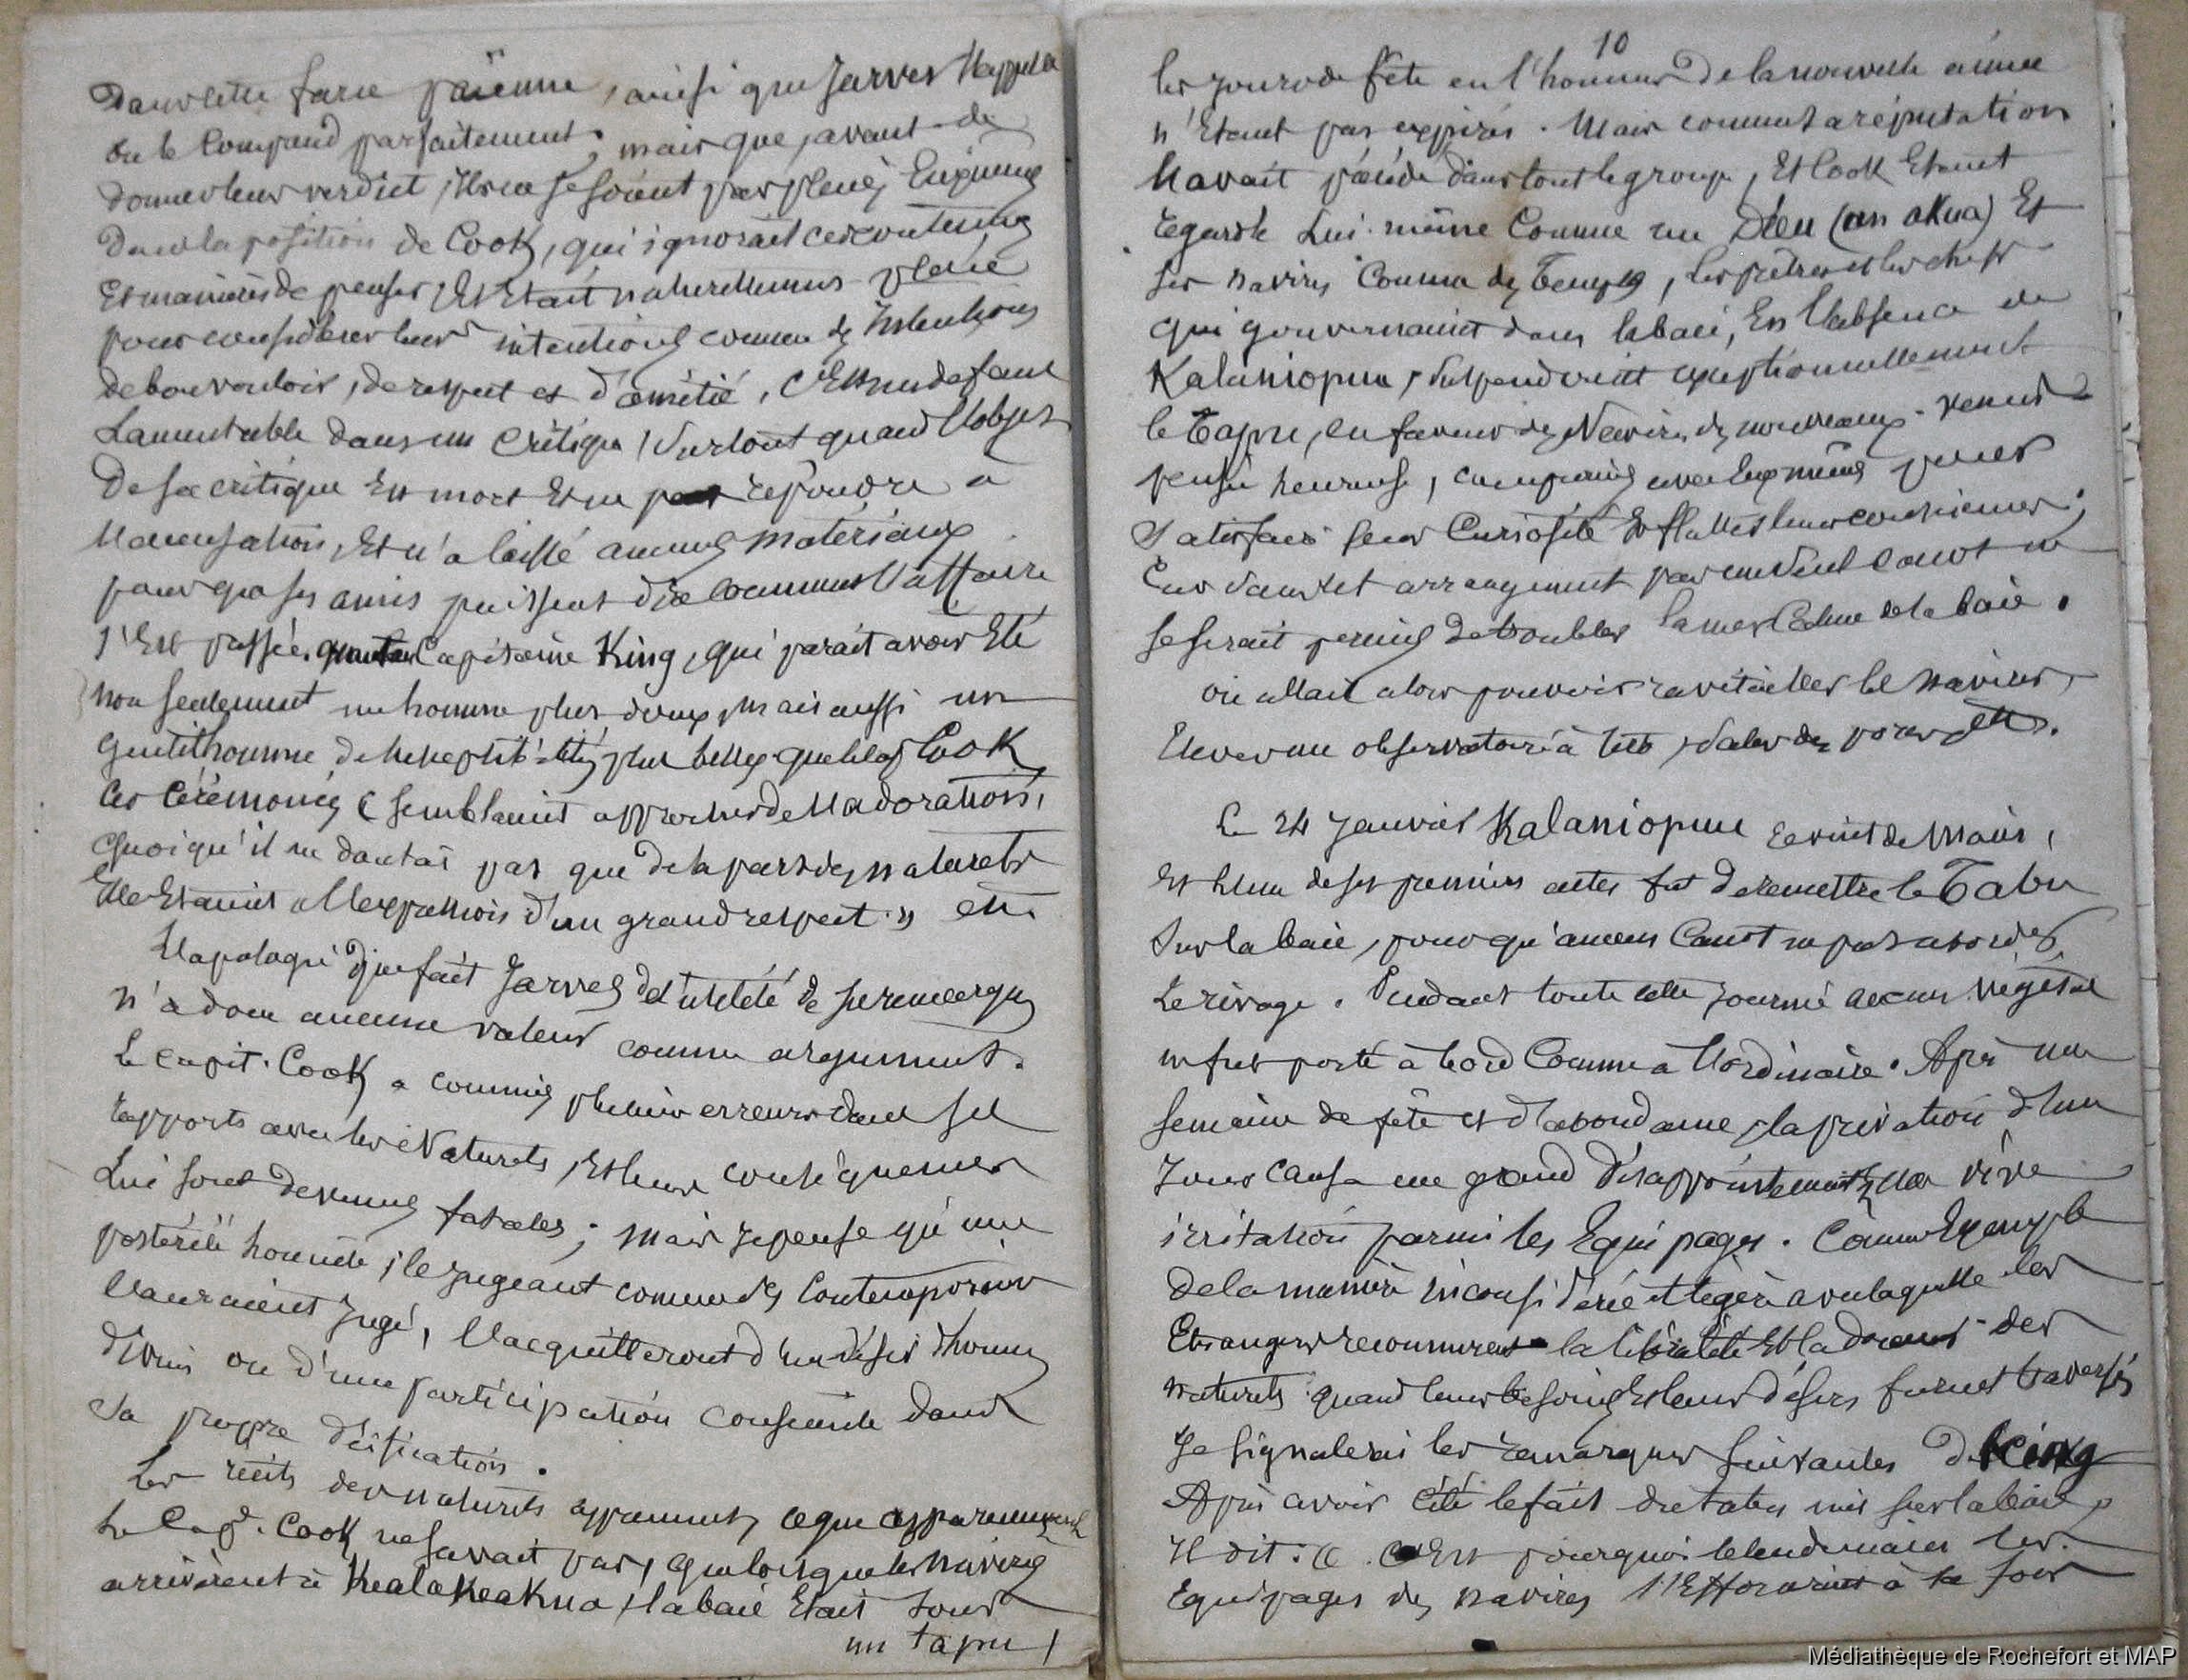 Dans cette farce païenne, ainsi que Jarves l'appela
on le comprend parfaitement; mais que, avant de
donner leur verdict, ils ne se soient pas placés eux-mêmes
dans la position de Cook, qui ignorait ces coutumes
et manières de penser, et était naturellement placé
pour considérer leurs intentions comme des intentions
de bon vouloir, de respect et d'amitié, c'est une faute
lamentable dans un critique, surtout quand l'objet
de sa critique est mort et ne peut répondre à
l'accusation, et n'a laissé aucuns matériaux
pour que ses amis puissent dire comment l'affaire
s'est passée. quant au Capitaine King, qui paraît avoir été
non seulement un homme plus doux, mais aussi un
gentilhomme de susceptibilités plus belles que celles Cook
les cérémonies « semblaient approcher de l'adoration,
quoiqu'il ne doutat pas que de la part des naturels
elles étaient l'expression d'un grand respect. » etc.
L'apologie que fait Jarves de l'utilité de ses remarques
n'a donc aucune valeur comme argument.
Le capit. Cook a commis plusieurs erreurs dans ses
rapports avec les Naturels, et leurs conséquences
lui sont devenues fatales; mais je pense qu'une
postérité honnête, le jugeant comme des contemporains
l'auraient jugé, l'acquitteront d'un désir d'honneurs
divins ou d'une participation consciente dans
sa propre déification.
Les récits des naturels apprennent, ce que apparemment
le Cap. Cook ne savait pas, que lorsque les navires
arrivèrent à Kealakeakua, la baie était sous
un tapu,
10
les jours de fête en l'honneur de la nouvelle année
n'étant pas expirés. Mais comme sa réputation
l'avait précédé dans tout le groupe, et Cook étant
regardé lui-même comme un Dieu (an akua) et
ses navires comme des temples, les prêtres et les chefs
qui gouvernaient dans la baie, en l'absence de
Kalaniopuu, suspendirent exceptionnellement
le Tapu, en faveur des Navires des nouveaux-venus
pensée heureuse, compromis avec eux mêmes pour
satisfaire leur curiosité et flatter leur conscience;
car sans cet arrangement pas un seul canot ne
se serait permis de troubler la mer calme de la baie.
on allait alors pouvoir ravitailler les navires,
élever un observatoire à terre, saler des porcs etc.
Le 24 Janvier Kalaniopuu revint de Maui,
et l'un de ses premiers actes fut de remettre le Tabu
sur la baie, pour qu'aucun canot ne put aborder
le rivage. Pendant toute cette journée aucun végétal
ne fut porté à bord comme à l'ordinaire. Après une
semaine de fête et d'abondance, la privation d'un
jour causa un grand désappointement, une vive
irritation parmi les équipages. Comme exemple
de la manière inconsidérée et légère avec laquelle les
étrangers reconnurent la libéralité et la douceur des
naturels quand leurs besoins et leurs désirs furent traversés
je signalerai les remarques suivantes de King
Après avoir cité le fait du tabu mis sur la baie,
il dit: « c'est pourquoi le lendemain les
équipages des navires s'efforcèrent à la fois
Médiathèque de Rochefort et MAP